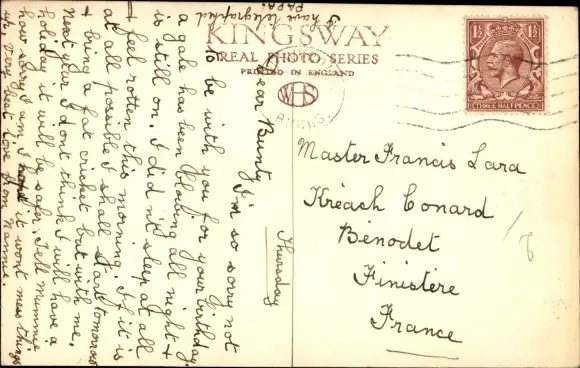 I have telegraphed
PAPA!
KINGSWAY
REAL PHOTO SERIES
PRINTED IN ENGLAND
WHS
THREE HALFPENCE
1½ 1½
Thursday
Dear Bunty
I'm so sorry not
to be with you for your birthday,
a gale has been blowing all night &
is still on. I didn't sleep at all
& feel rotten this morning. If it is
at all possible I shall start tomorrow
& bring a fat cricket bat with me.
Next year I dont think I will have a
holiday it will be safer. Tell Mummie
how sorry I am it wont mess things
up. Very best love from Nannie.
Master Francis Lara
Kréach Conard
Bénodet
Finistère
France